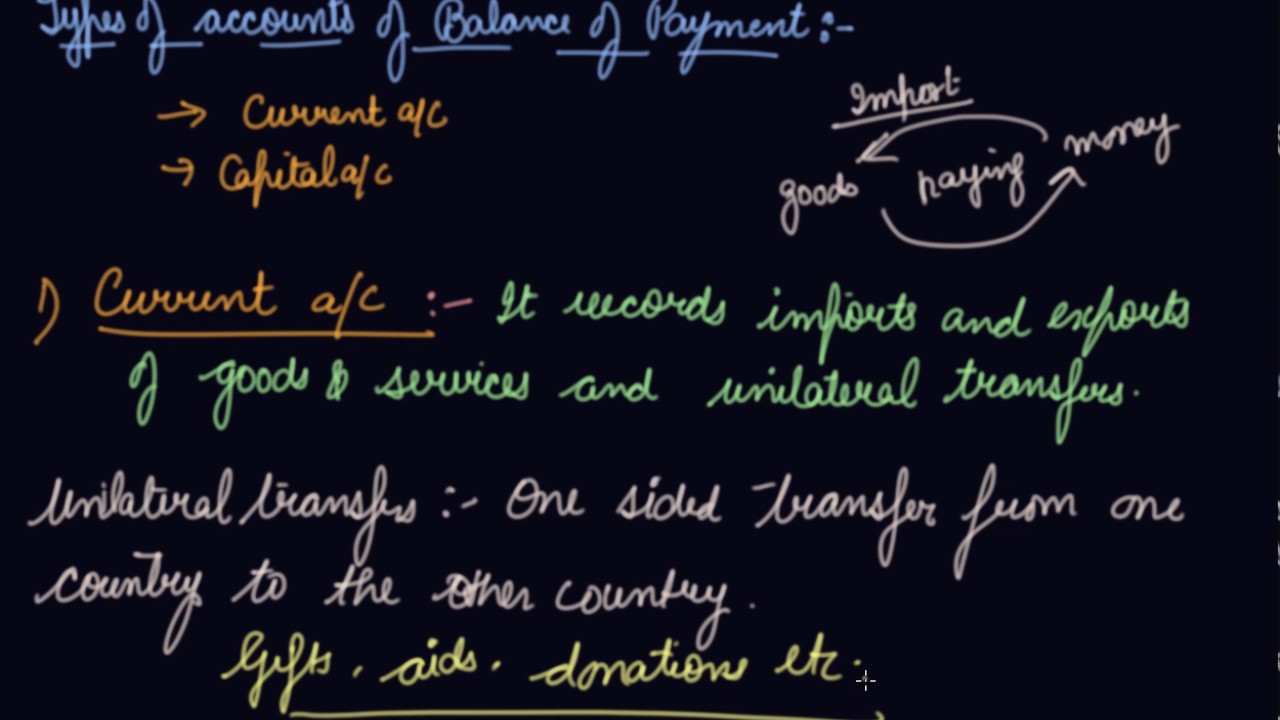 Types of accounts of Balance of Payment :-
→ Current a/c
→ Capital a/c
Import
goods paying money
1) Current a/c :- It records imports and exports
of goods & services and unilateral transfers.
Unilateral transfers :- One sided transfer from one
country to the other country.
Gifts, aids, donations etc.